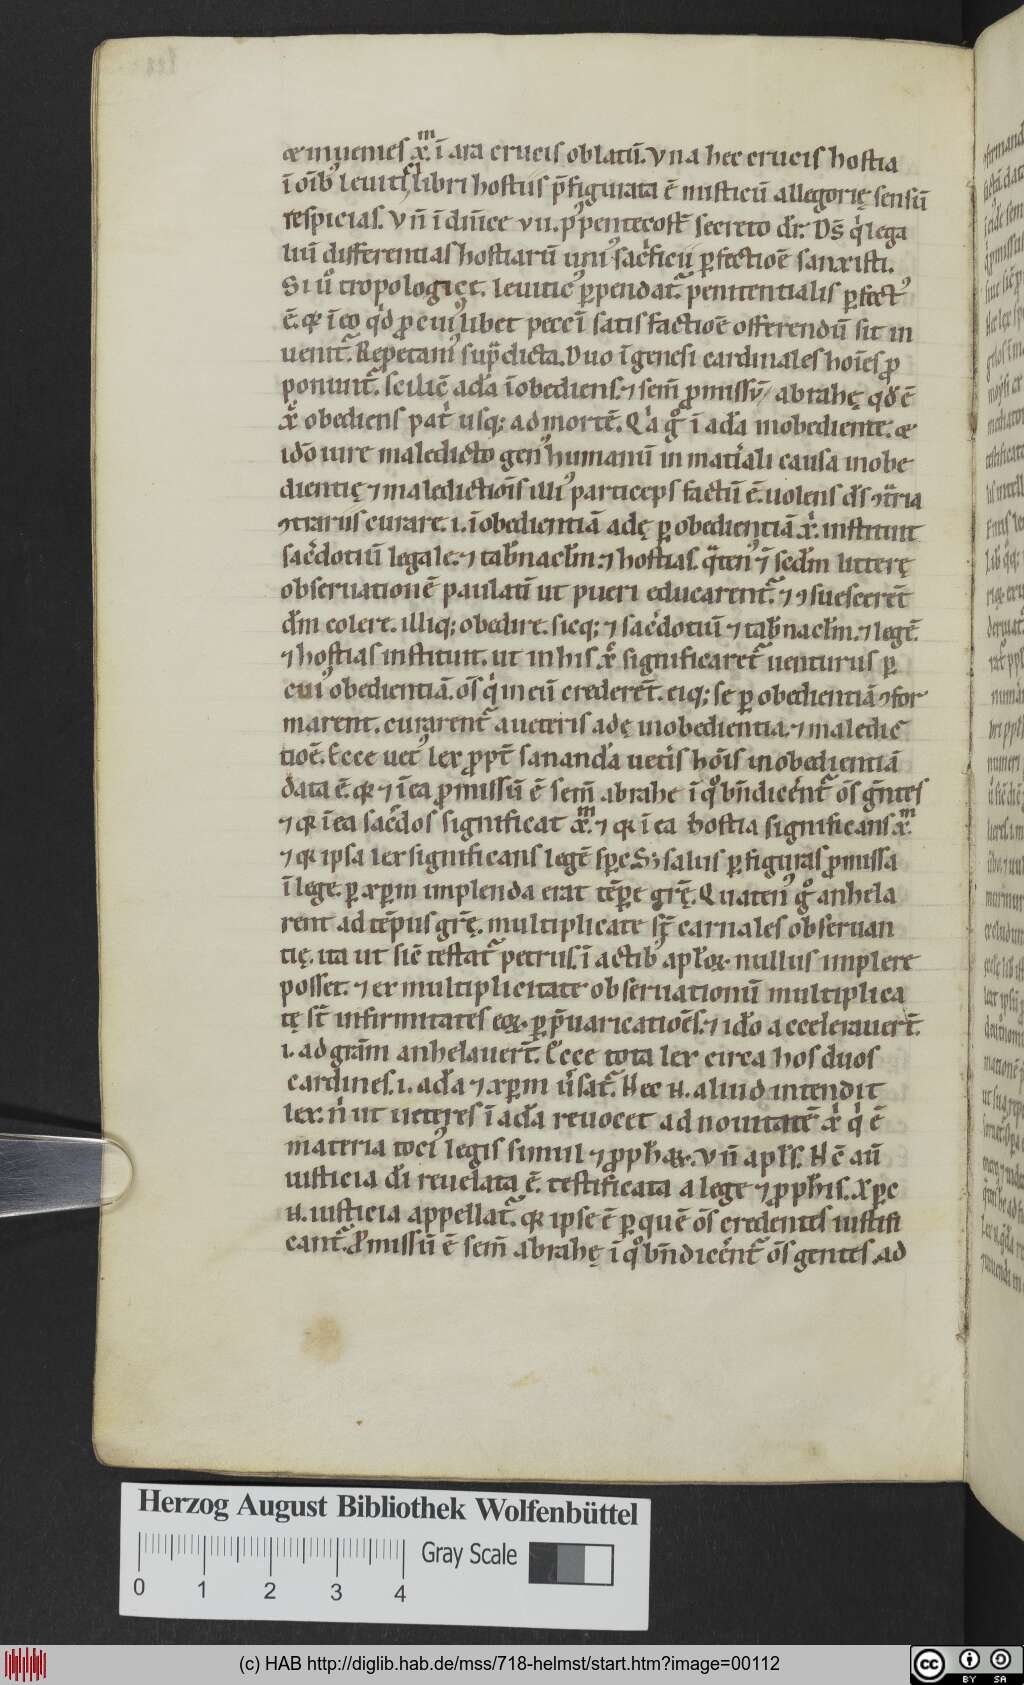 & inuenies xͫ. ī ara crucis oblatū. Vna hec crucis hostia
ī oīb' leuitici libri hostiis p̄figurata ē misticū allegorię sensū
respicias. Vñ ī dm̄ice vii. p' pentecosť secreto dr̄. Ds̄ qⁱ lega
liū differentias hostiarū uni' sacͥficii pfectioē sanxisti.
Si ů tropologic t. leuitic' ppendat᷑ penitentialis pfect'
ē. qꝛ ī eo qd̄ p cui'libet peccī satisfactioē offerendū sit in
uenit᷑. Repetam' sup̄dicta. Duo ī genesi cardinales hoīes p
ponunt᷑. scilic̄ adā īobediens. ⁊ sem̄ pmissū abrahę qd̄ ē
xͨ obediens patͥ usq; ad mortē. Qͥa gͦ ī adā inobediente. &
idō iure maledicto gen' humanū in matͥali causa inobe
dientię ⁊ maledictiōis illi' particeps factū ē. uolens d̄s ↄͭria
ↄtrariis curare. i. īobedientiā adę p obedientiā xͥ. instituit
sacͤdotiū legale. ⁊ tab̄nacl̄m. ⁊ hostias. qͣten' ⁊ī scd̄m litterę
obseruationē paulatī ut pueri educarent᷑. ⁊ ↄsuescerēt
d̄m colere. illiq; obedire. sicq; ⁊ sacͤdotiū ⁊ tab̄nacl̄m. ⁊ legē.
⁊ hostias instituit. ut in his xͨ significaret᷑ uenturus p
cui' obedientiā. os̄ qͥ in eū crederēt. eiq; se p obedientiā ↄfor
marent. curarent᷑ a ueteris adę inobedientia. ⁊ maledic
tioē. Ecce uet' lex ppt̄ sanandā uetͥs hoīs inobedientiā
data ē. qꝛ ⁊ ī ea pmissū ē sem̄ abrahe ī qͦ bn̄dicent᷑ os̄ gn̄tes
⁊ qꝛ ī ea sacͤdos significat xͫ. ⁊ qꝛ ī ea hostia significans xͫ.
⁊ qꝛ ipsa lex significans legē sp̄c. Sȝ salus p figuras pmissa
ī lege. p xp̄m implenda erat tēpe gr̄ę. Quaten' gͦ anhela
rent ad tēpus gr̄ę. multiplicate st̄ carnales obseruan
tię. ita ut sic̄ testat᷑ petrus. ī actib' apl̄oꝝ nullus implere
posset. ⁊ ex multiplicitate obseruationū multiplica
tę st̄ infirmitates eoꝝ. p p̄uaricatiōes. ⁊ idō accelerauert̄.
i. ad grām anhelauert̄. Ecce tota lex circa hos duos
cardines. i. adā ⁊ xp̄m ůsat᷑. Hec .n. aliud intendit
lex. nͥ ut ueteres ī adā reuocet ad nouitatē xͥ qͥ ē
materia toci' legis simul ⁊ pphaꝝ. Vñ apl̄s. H ē aū
iusticia dī reuelata ē. testificata a lege ⁊ pphīs. Xp̄c
.n. iusticia appellat᷑. qꝛ ipse ē p quē os̄ credentes iustifi
cant᷑. Pmissū ē sem̄ abrahę ī qͦ bn̄dicent᷑ os̄ gentes. ad
Herzog August Bibliothek Wolfenbüttel
0 1 2 3 4 Gray Scale
(c) HAB http://diglib.hab.de/mss/718-helmst/start.htm?image=00112
cc BY SA